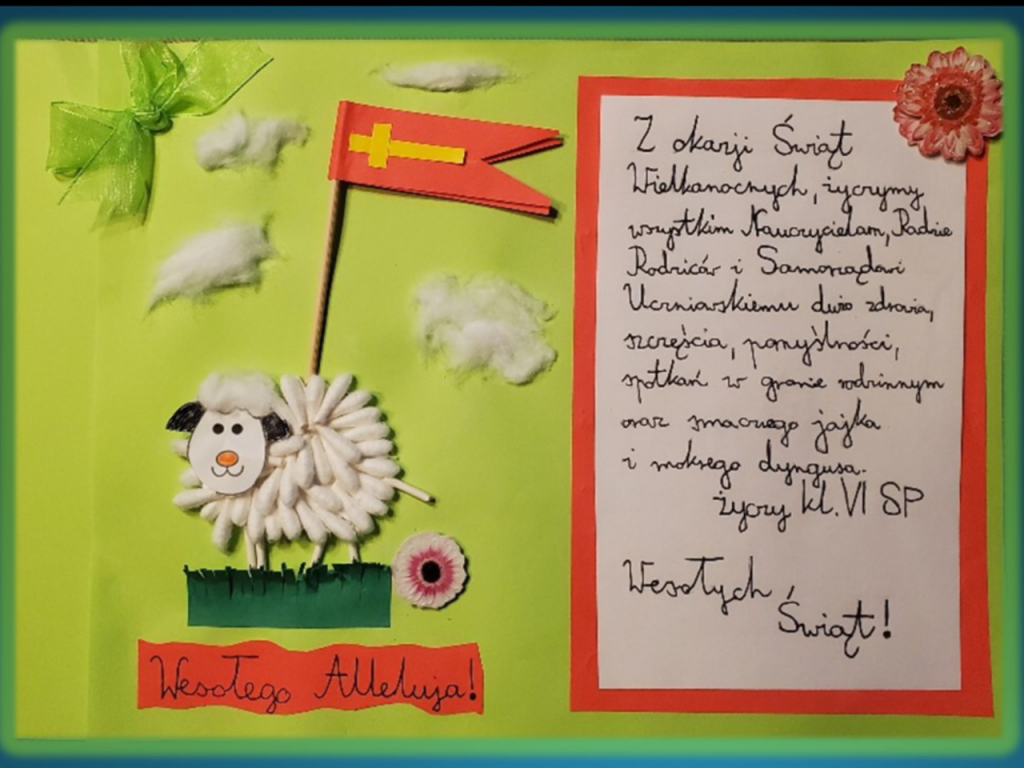 Z okazji Świąt
Wielkanocnych, życzymy
wszystkim Nauczycielom, Radzie
Rodziców i Samorządowi
Uczniowskiemu dużo zdrowia,
szczęścia, pomyślności,
spotkań w gronie rodzinnym
oraz smacznego jajka
i mokrego dyngusa.
życzy kl. VI SP
Wesołych
Świąt!
Wesołego Alleluja!